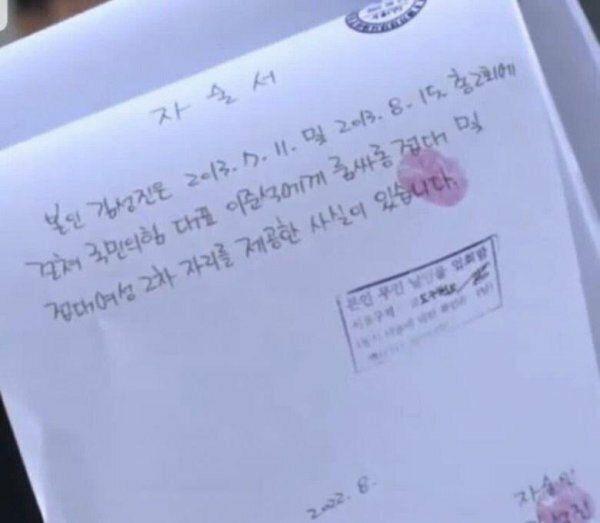 자술서
본인 김성진은 2013. 7. 11. 및 2013. 8. 15. 총 2회에
걸쳐 국민의힘 대표 이준석에게 룸싸롱 접대 및
접대여성 2차 자리를 제공한 사실이 있습니다.
본인 무인
2022. 8.
자술인